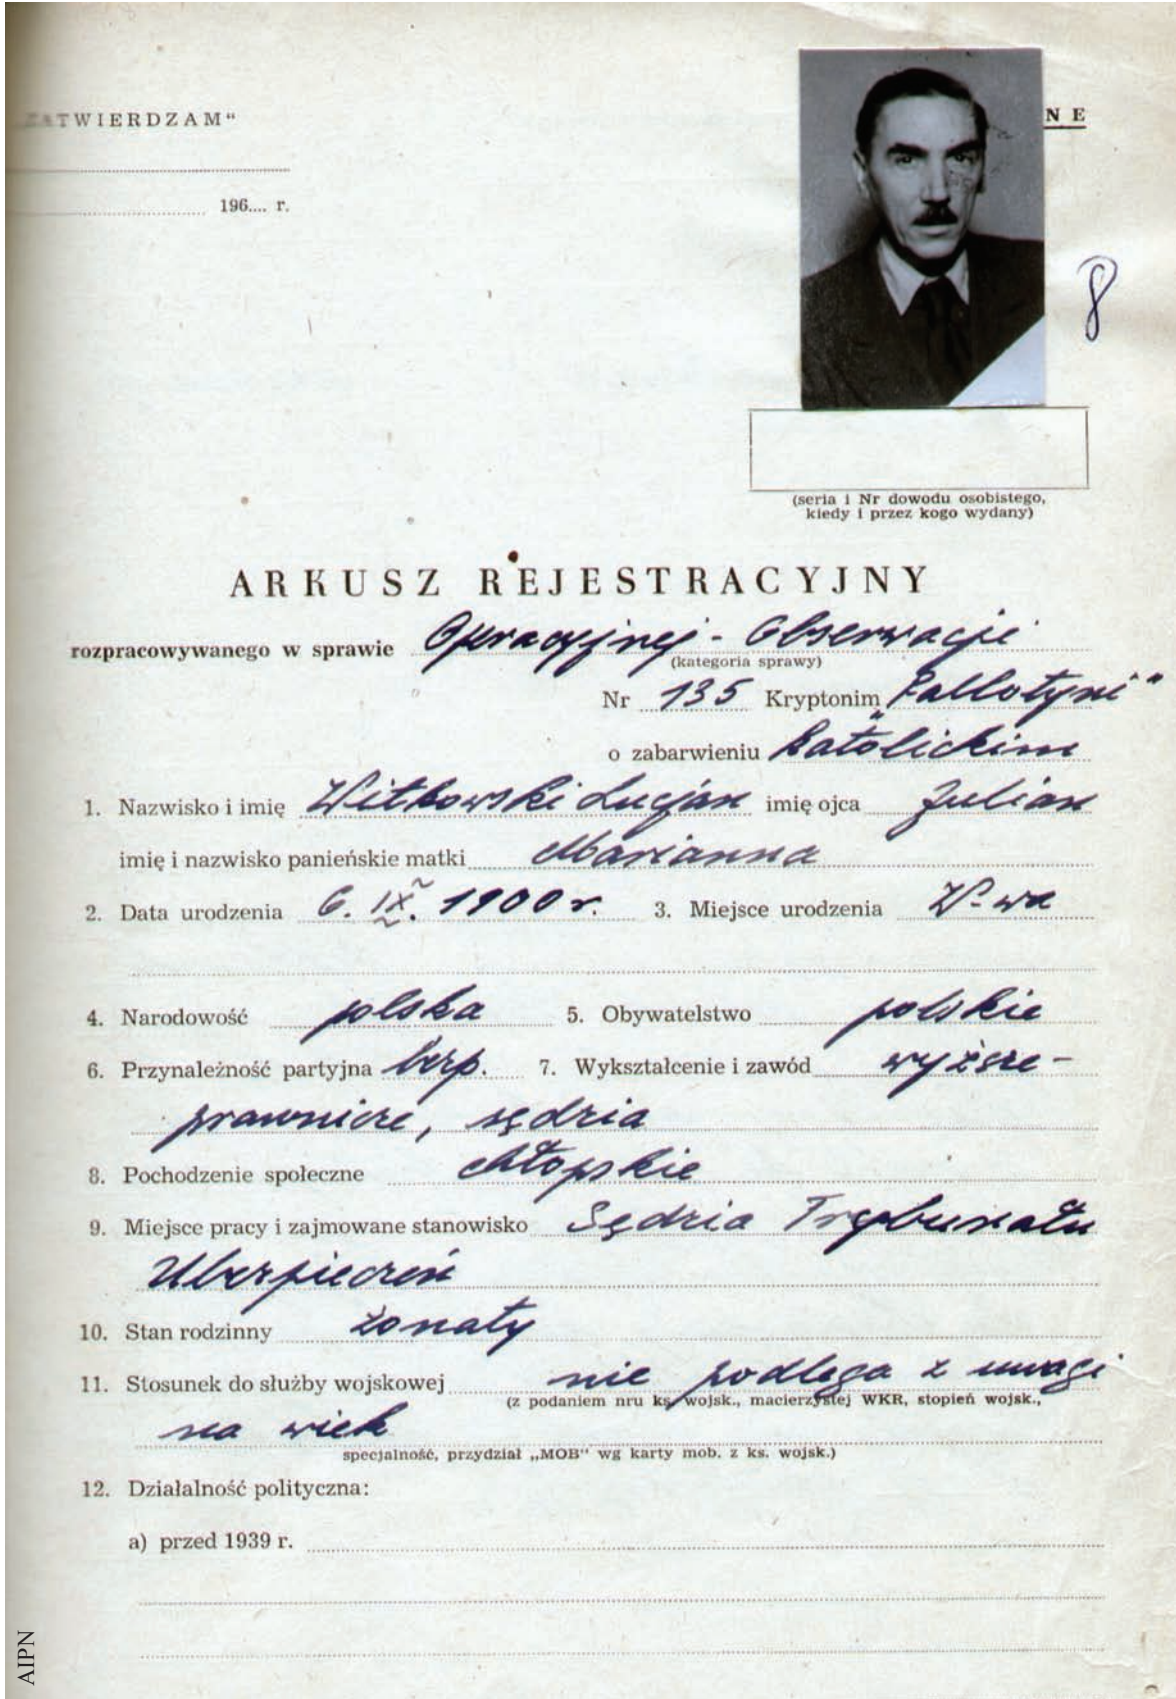 ZATWIERDZAM“
NE
196.... r.
8
(seria i Nr dowodu osobistego,
kiedy i przez kogo wydany)
ARKUSZ REJESTRACYJNY
rozpracowywanego w sprawie Operacyjnej - Obserwacji
(kategoria sprawy)
Nr 135 Kryptonim "Pallotyni"
o zabarwieniu katolickim
1. Nazwisko i imię Witkowski Lucjan imię ojca Julian
imię i nazwisko panieńskie matki Marianna
2. Data urodzenia 6. IX. 1900 r. 3. Miejsce urodzenia W-wa
4. Narodowość polska 5. Obywatelstwo polskie
6. Przynależność partyjna bezp. 7. Wykształcenie i zawód wyższe -
prawnicze, sędzia
8. Pochodzenie społeczne chłopskie
9. Miejsce pracy i zajmowane stanowisko Sędzia Trybunału
Ubezpieczeń
10. Stan rodzinny żonaty
11. Stosunek do służby wojskowej nie podlega z uwagi
(z podaniem nru ks. wojsk., macierzystej WKR, stopień wojsk.,
na wiek
specjalność, przydział „MOB“ wg karty mob. z ks. wojsk.)
12. Działalność polityczna:
a) przed 1939 r.
AIPN